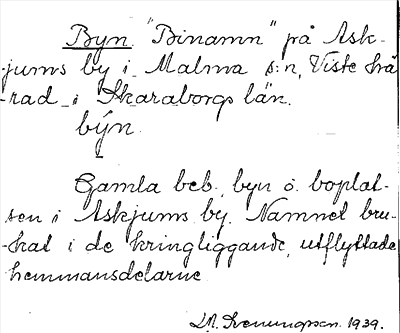 Byn. "Binamn" på Ask-
jums by i Malma s:n, Viste hä-
rad i Skaraborgs län.
by̌n.
Gamla beb. byn o. boplat-
sen i Askjums by. Namnet bru-
kat i de kringliggande, utflyttade
hemmansdelarne
1939.